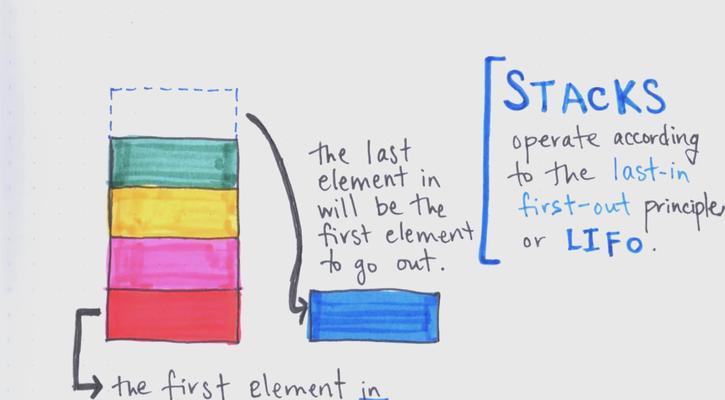 STACKS
operate according
to the last-in
first-out principle
or LIFO.
the last
element in
will be the
first element
to go out.
the first element in